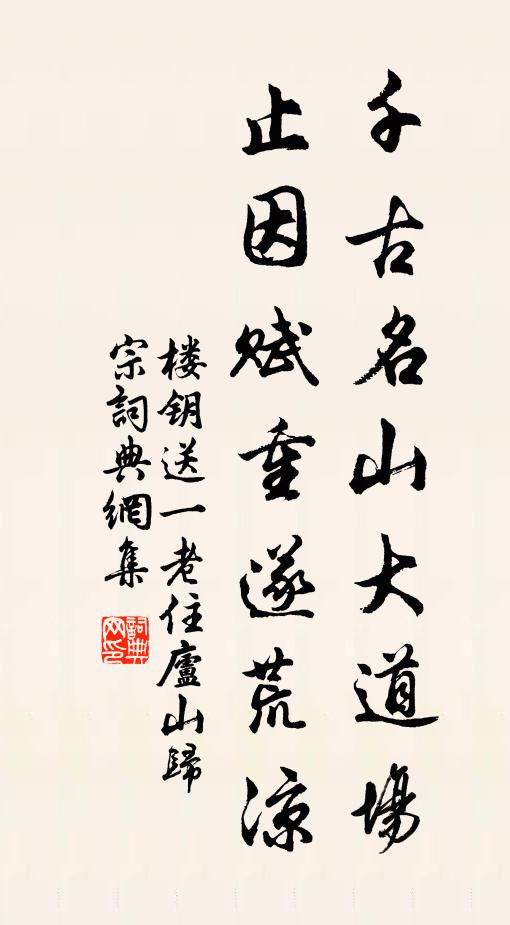 千古名山大道場
止因賦重遂荒涼
楼钥送一老住廬山歸
宗詞典網集
詞典网印